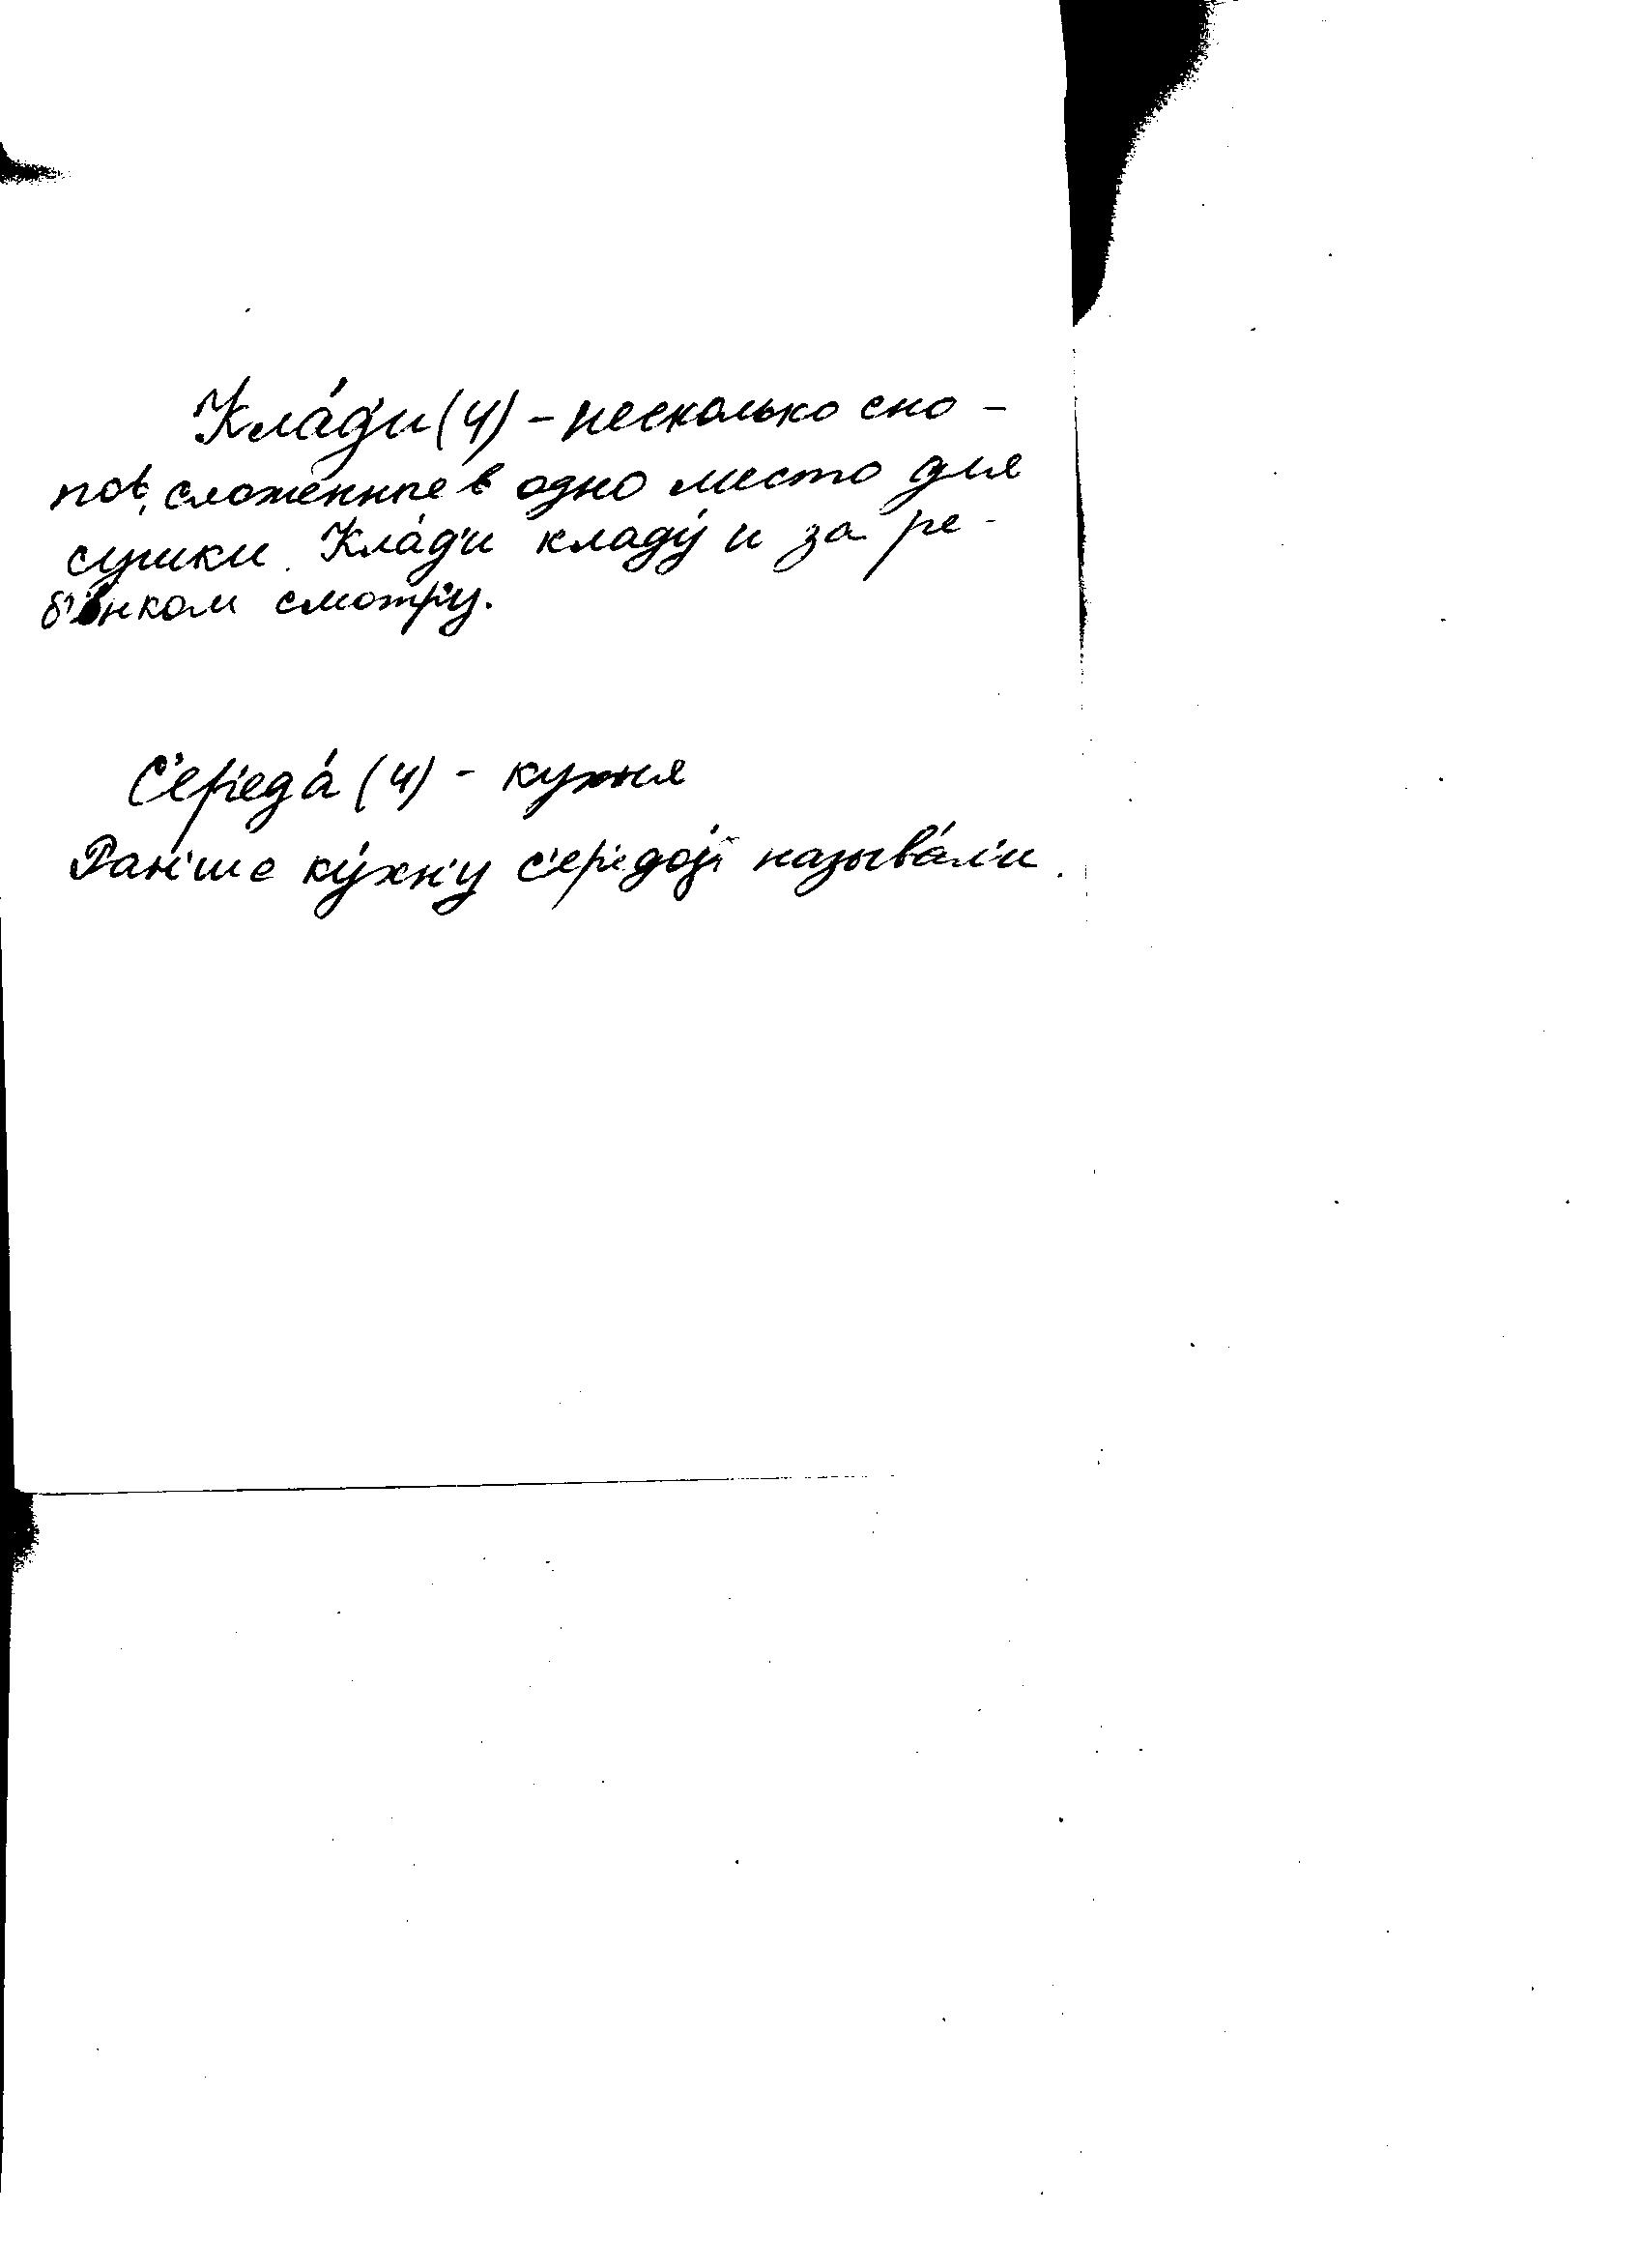 Кла́д'и (ч) - несколько сно-
пов, сложенные в одно место для
сушки. Кла́д'и кладу́ и за ре-
б'о́нком смотр'у.
С'ер'еда́ (ч) - кухня
Ран'ше ку́хн'у с'ер'едо́й называ́л'и.